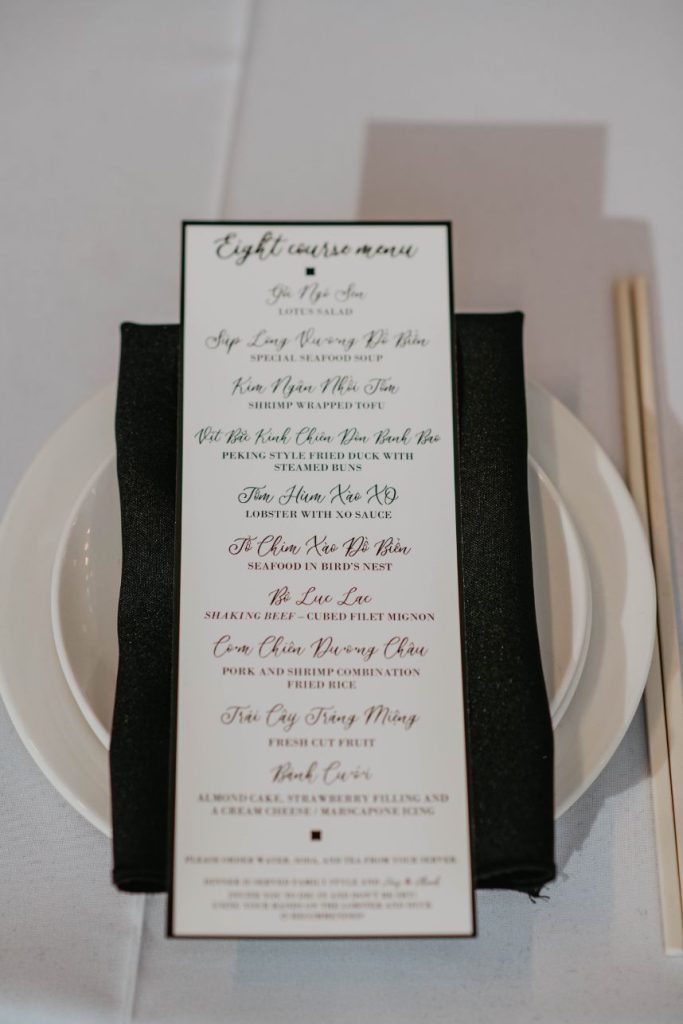 Eight course menu
Gỏi Ngó Sen
LOTUS SALAD
Súp Long Vương Đồ Biển
SPECIAL SEAFOOD SOUP
Kim Ngân Nhồi Tôm
SHRIMP WRAPPED TOFU
Vịt Bắc Kinh Chiên Dòn Banh Bao
PEKING STYLE FRIED DUCK WITH
STEAMED BUNS
Tôm Hùm Xào XO
LOBSTER WITH XO SAUCE
Tổ Chim Xào Đồ Biển
SEAFOOD IN BIRD'S NEST
Bò Luc Lac
SHAKING BEEF – CUBED FILET MIGNON
Cơm Chiên Dương Châu
PORK AND SHRIMP COMBINATION
FRIED RICE
Trái Cây Tráng Miệng
FRESH CUT FRUIT
Bánh Cưới
ALMOND CAKE, STRAWBERRY FILLING AND
A CREAM CHEESE / MARSCAPONE ICING
PLEASE ORDER WATER, SODA, AND TEA FROM YOUR SERVER.
DINNER IS SERVED FAMILY STYLE AND
INVITE YOU TO DIG IN AND DON'T BE SHY!
USING YOUR HANDS ON THE LOBSTER AND DUCK
IS RECOMMENDED